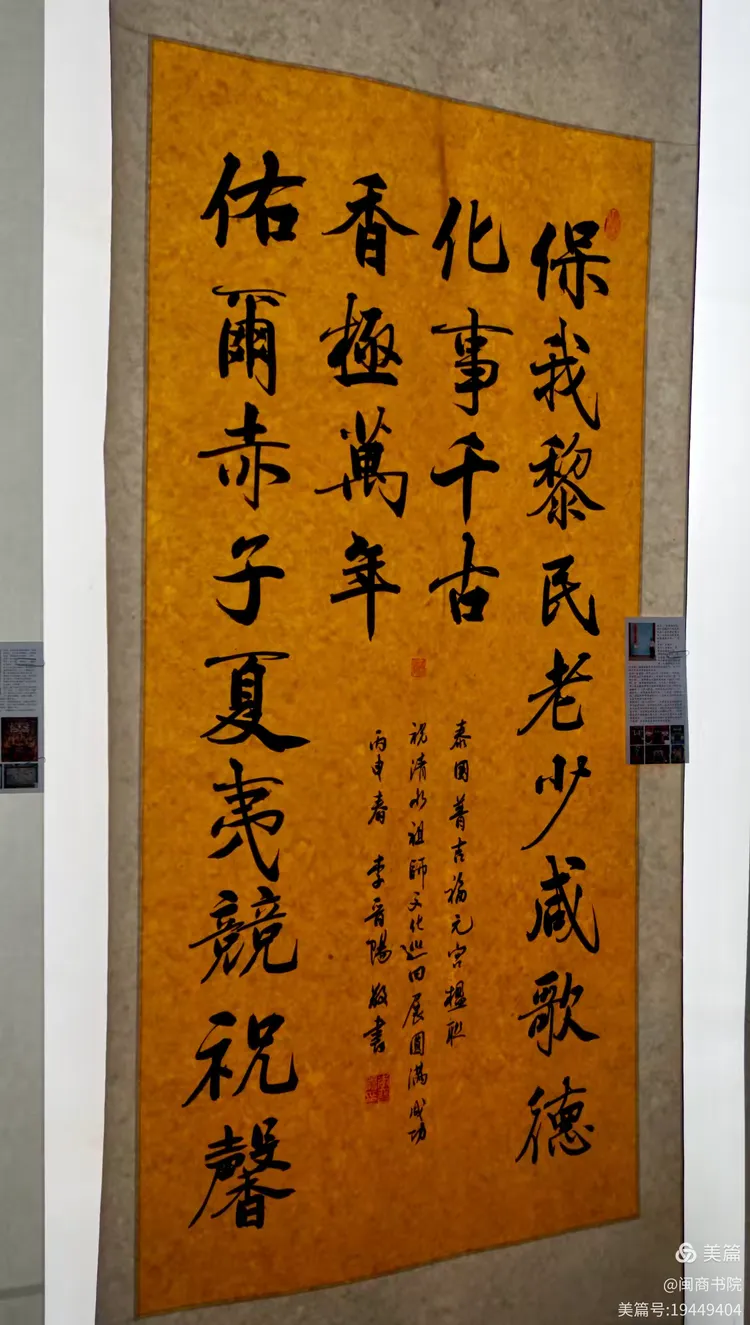 保我黎民老少咸歌德
化事千古
香極萬年
佑爾赤子夏夷競祝馨
泰國普吉福元宮楹聯
祝清水祖師文化巡回展圓滿成功
丙申春 李晋陽敬書
美篇
@闽商书院
美篇号:19449404